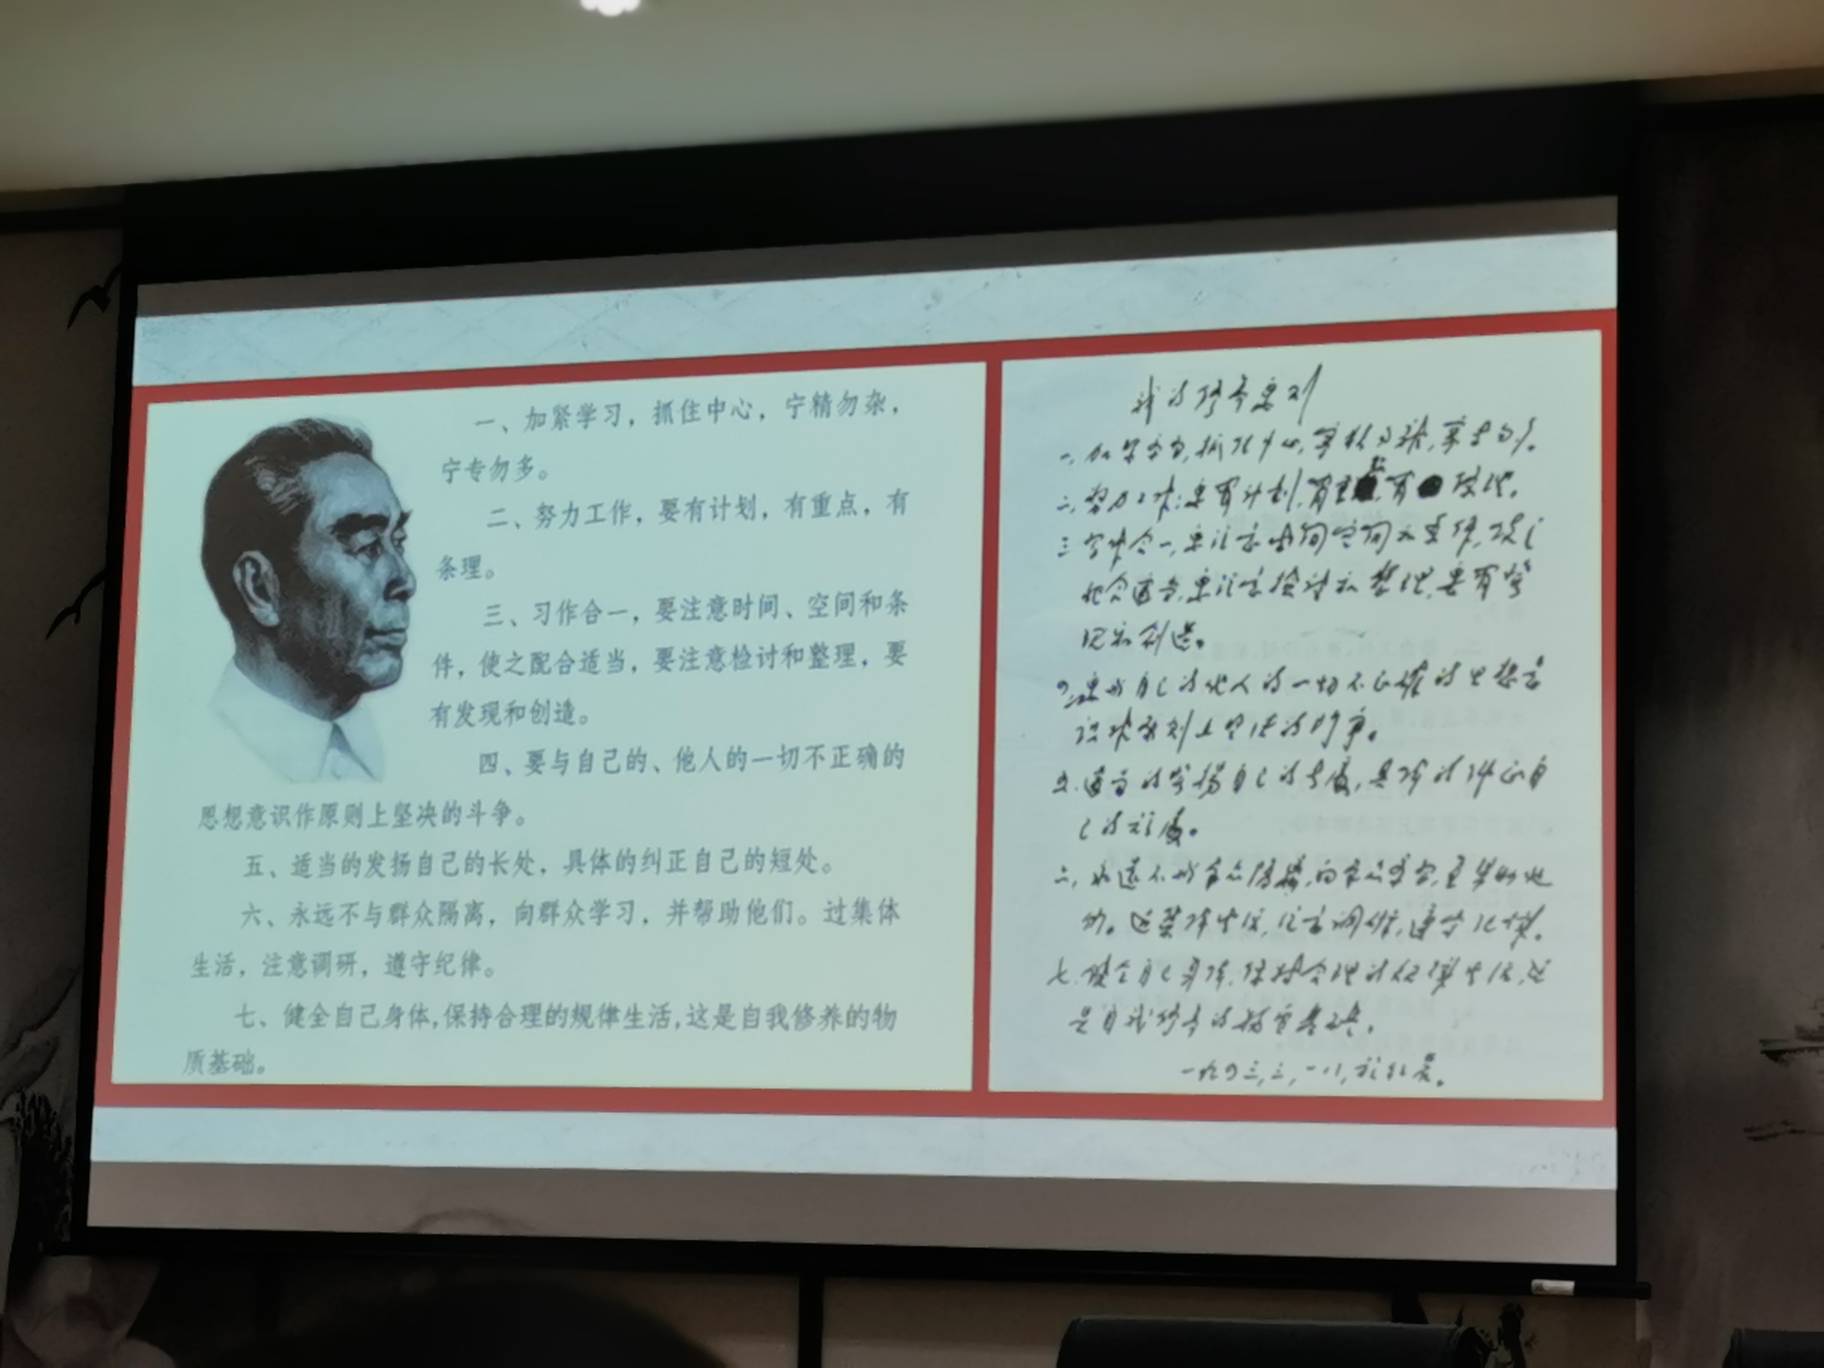 一、加紧学习，抓住中心，宁精勿杂，
宁专勿多。
二、努力工作，要有计划，有重点，有
条理。
三、习作合一，要注意时间、空间和条
件，使之配合适当，要注意检讨和整理，要
有发现和创造。
四、要与自己的、他人的一切不正确的
思想意识作原则上坚决的斗争。
五、适当的发扬自己的长处，具体的纠正自己的短处。
六、永远不与群众隔离，向群众学习，并帮助他们。过集体
生活，注意调研，遵守纪律。
七、健全自己身体,保持合理的规律生活,这是自我修养的物
质基础。
我的修养要则
一、加紧学习，抓住中心，宁精勿杂，宁专勿多。
二、努力工作，要有计划，有重点，有条理。
三、习作合一，要注意时间空间和条件，使之
配合适当，要注意检讨和整理，要有发
现和创造。
四、要与自己的他人的一切不正确的思想意
识作原则上坚决的斗争。
五、适当的发扬自己的长处，具体的纠正自
己的短处。
六、永远不与群众隔离，向群众学习，并帮助他
们。过集体生活，注意调研，遵守纪律。
七、健全自己身体，保持合理的规律生活，这
是自我修养的物质基础。
一九四三，三，一八，